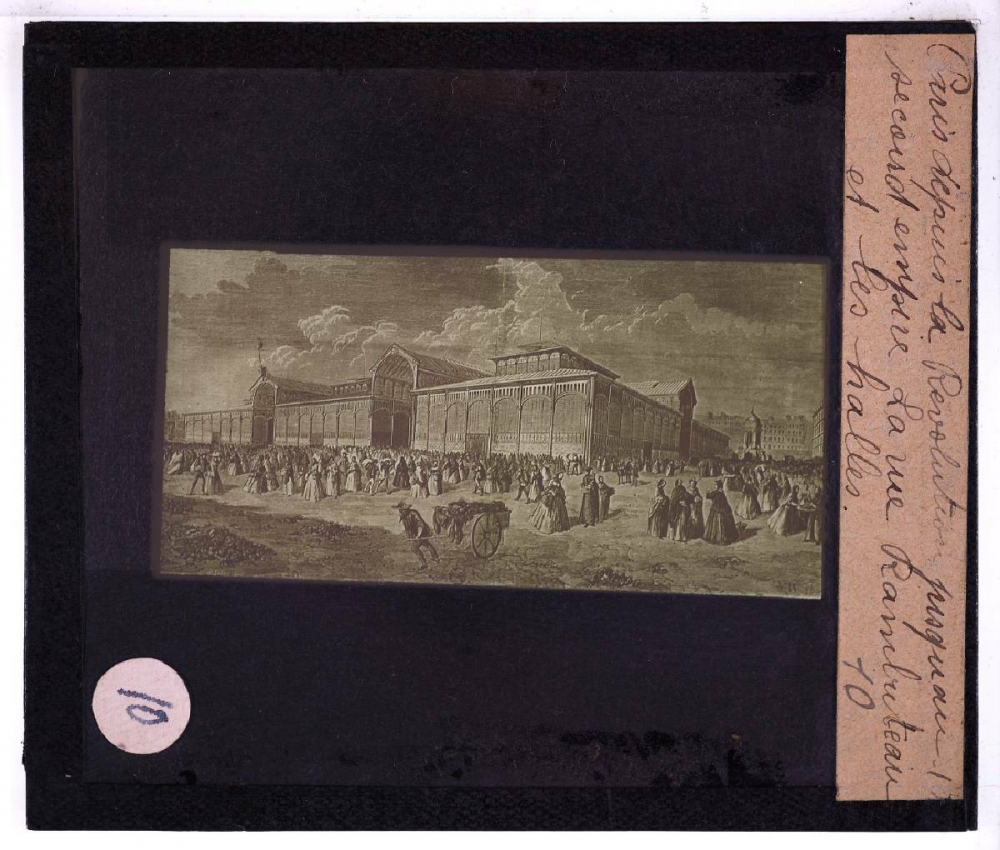 Paris depuis la Revolution jusquau
second empire La rue Rambuteau
et les halles.
10
10